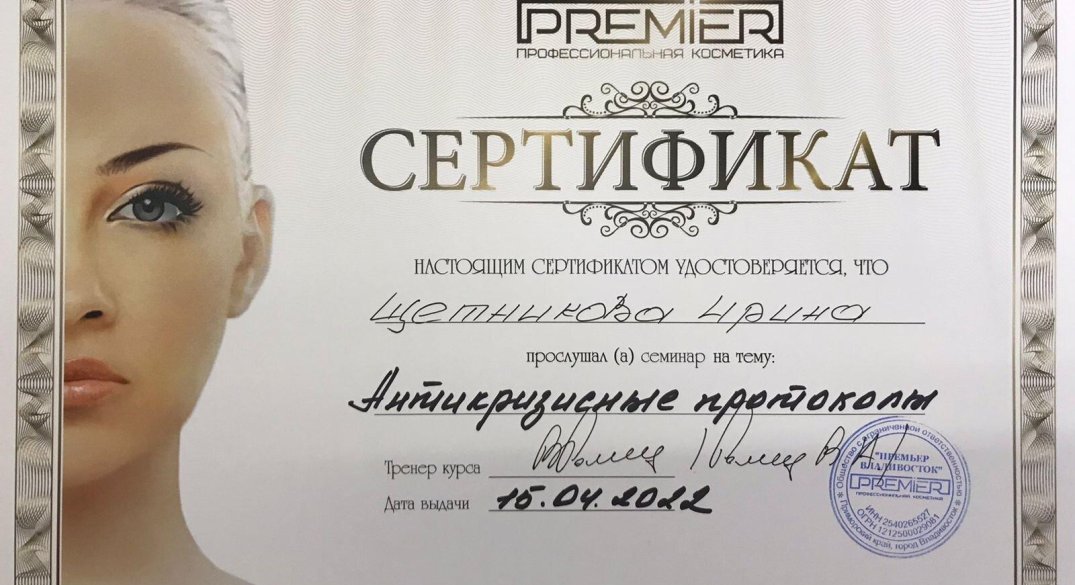 PREMIER
ПРОФЕССИОНАЛЬНАЯ КОСМЕТИКА
СЕРТИФИКАТ
НАСТОЯЩИМ СЕРТИФИКАТОМ УДОСТОВЕРЯЕТСЯ, ЧТО
Щетникова Ирина
прослушал (а) семинар на тему:
Антикризисные протоколы
Тренер курса
Дата выдачи 15.04.2022
Общество с ограниченной ответственностью
"ПРЕМЬЕР
ВЛАДИВОСТОК"
PREMIER
ПРОФЕССИОНАЛЬНАЯ КОСМЕТИКА
ИНН 2540265527
ОГРН 1212500029081
* Приморский край, город Владивосток *